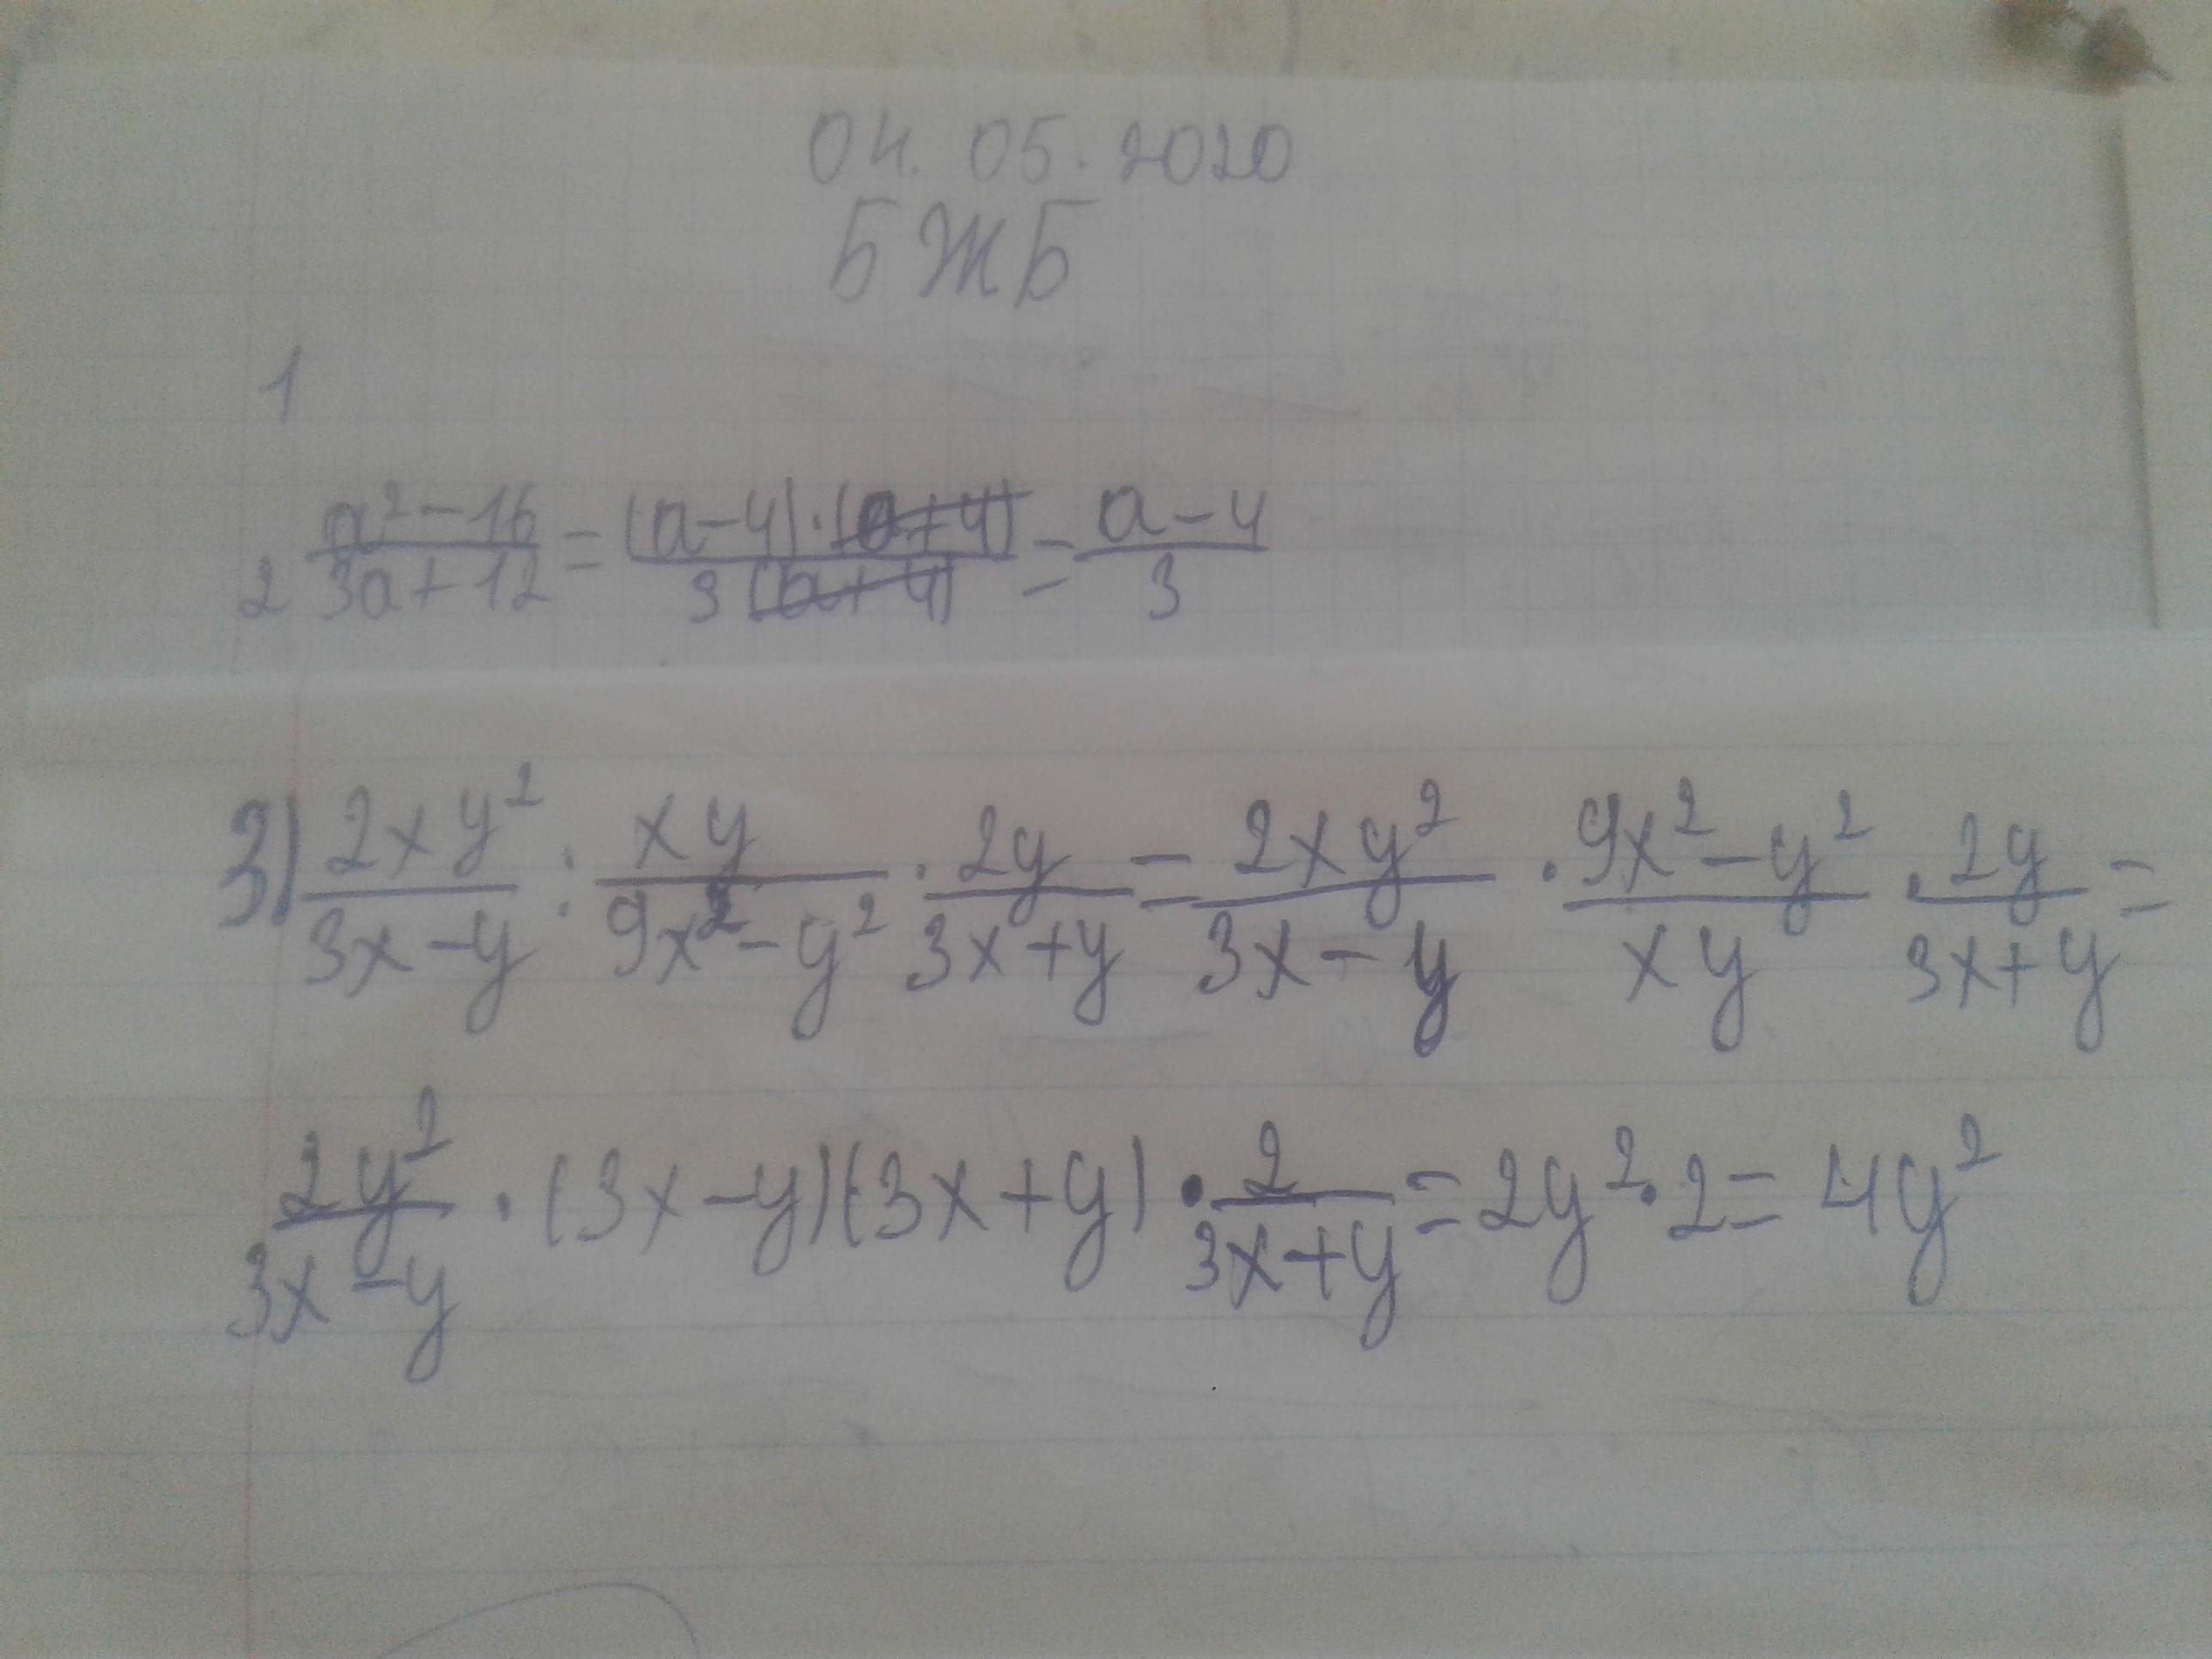 04.05.2020
БЖБ
1
2 \frac{a²-16}{3a+12} = \frac{(a-4)·(a+4)}{3(a+4)} = \frac{a-4}{3}
3) \frac{2xy²}{3x-y} : \frac{xy}{9x²-y²} · \frac{2y}{3x+y} = \frac{2xy²}{3x-y} · \frac{9x²-y²}{xy} · \frac{2y}{3x+y} =
\frac{2y²}{3x-y} · (3x-y)(3x+y) · \frac{2}{3x+y} = 2y²·2 = 4y²